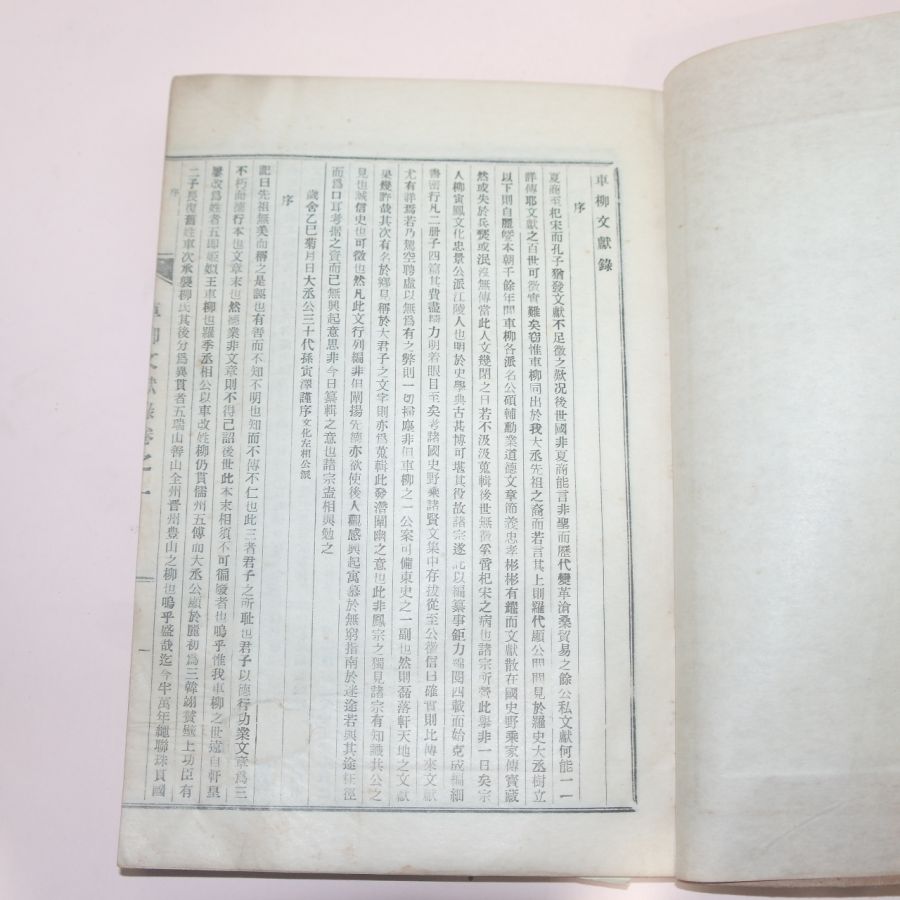 車柳文獻錄
序
夏商至杞宋而孔子猶發文獻不足徵之歎况後世國非夏商能言非聖而歷代變革滄桑貿易之餘公私文獻何能一一
詳傳耶文獻之百世可徵實難矣窃惟車柳同出於我大丞先祖之裔而若言其上則羅代顯公間間見於羅史大丞樹立
以下則自麗曁本朝千餘年間車柳各派名公碩輔勳業道德文章節義忠孝彬彬有耀而文獻散在國史野乘家傳寶藏
然或失於兵燹或泯沒無傳當此人文幾閉之日若不汲汲蒐輯後世無徵烏得免杞宋之病也諸宗所營此擧非一日矣宗
人柳寅鳳文化忠景公派江陵人也明於史學典古甚博可堪其役故諸宗遂託以編纂事鉅力綿閱四載而始克成編細
書密行凡二册子四篇其費盡精力明着眼目至矣考諸國史野乘諸賢文集中存拔從至公徵信曰確實則比傳來文獻
尤有詳焉若乃駕空聘虛以無爲有之弊則一切掃塵非但車柳之一公案可備東史之一副也然則磊落軒天地之文獻
梁幾許哉其次有名於鄉見稱於大君子之文字則亦爲蒐輯此發潛闡幽之意也此非鳳宗之獨見諸宗有知識共公之
見也誠信史也可徵也然凡此文行列編非但闡揚先德亦欲使後人觀感興起寓慕於無窮指南於迷途若與其途任徑
而爲口耳考据之資而已無興起意思非今日纂輯之意也諸宗盍相與勉之
歲舍乙巳菊月日大丞公三十代孫寅澤謹序文化左相公派
序
記曰先祖無美而稱之是誣也有善而不知不明也知而不傳不仁也此三者君子之所耻也君子以德行功業文章爲三
不朽而德行本也文章末也然德業非文章則不得已詔後世此本末相須不可偏廢者也嗚乎惟我車柳之世遠自軒皇
屢改爲姓者五即姬姒王車柳也羅季丞相公以車改姓柳仍貫儒州五傳而大丞公顯於麗初爲三韓翊贊壁上功臣有
二子長復舊姓車次承襲柳氏其後分爲異貫者五瑞山善山全州晋州豊山之柳也嗚乎盛哉迄今半萬年繩聯珠貫國
序
車柳文獻錄卷之一
一